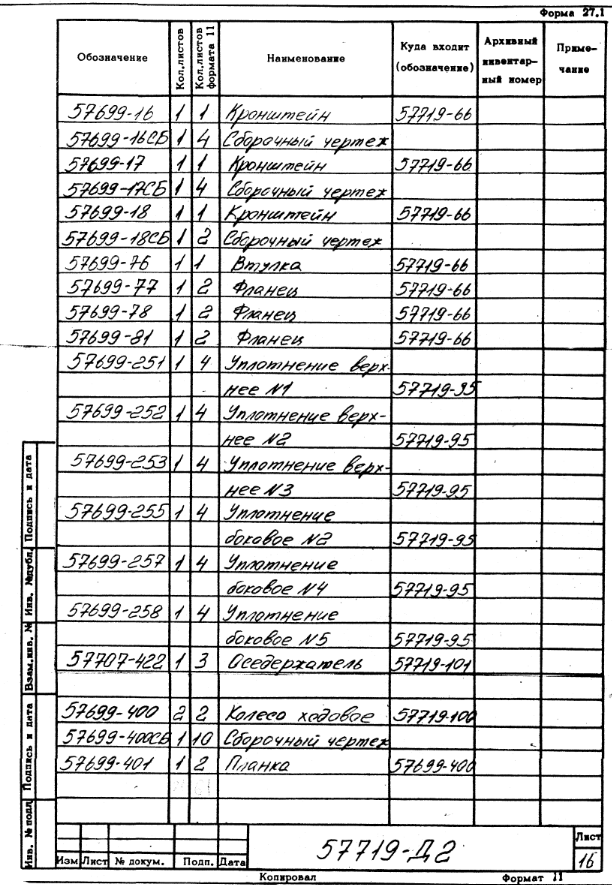 Форма 27.1
Обозначение Кол.листов Кол.листов формата 11 Наименование Куда входит (обозначение) Архивный инвентарный номер Примечание
57699-16 1 1 Кронштейн 57719-66
57699-16СБ 1 4 Сборочный чертеж
57699-17 1 1 Кронштейн 57719-66
57699-17СБ 1 4 Сборочный чертеж
57699-18 1 1 Кронштейн 57719-66
57699-18СБ 1 2 Сборочный чертеж
57699-76 1 1 Втулка 57719-66
57699-77 1 2 Фланец 57719-66
57699-78 1 2 Фланец 57719-66
57699-81 1 2 Фланец 57719-66
57699-251 1 4 Уплотнение верх-
нее №1 57719-95
57699-252 1 4 Уплотнение верх-
нее №2 57719-95
57699-253 1 4 Уплотнение верх-
нее №3 57719-95
57699-255 1 4 Уплотнение
боковое №2 57719-95
57699-257 1 4 Уплотнение
боковое №4 57719-95
57699-258 1 4 Уплотнение
боковое №5 57719-95
57707-422 1 3 Оседержатель 57719-101
57699-400 2 2 Колесо ходовое 57719-100
57699-400СБ 1 10 Сборочный чертеж
57699-401 1 2 Планка 57699-400
Инв. № подл. Подпись и дата Взам.инв. № Инв. №дубл. Подпись и дата
Изм Лист № докум. Подп. Дата
57719-Д2
Лист
16
Копировал Формат 11